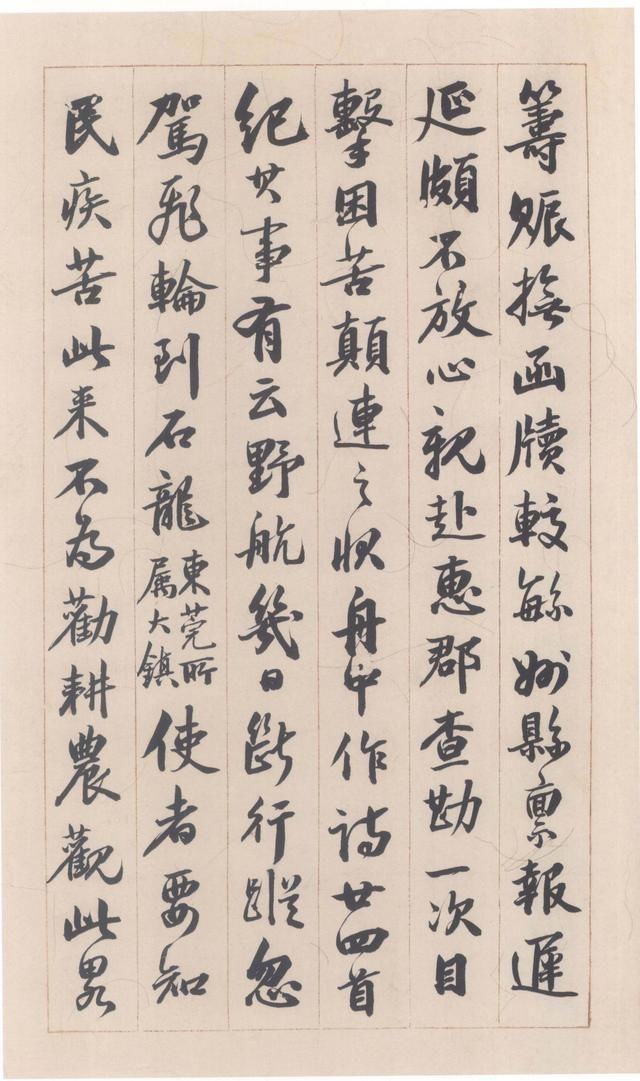 籌賑撫函牘較繇州縣禀報遲
延頗不放心親赴惠郡查勘一次目
擊困苦顛連之狀舟中作詩廿四首
紀其事有云野航幾日斷行蹤忽
駕飛輪到石龍東莞所属大鎮使者要知
民疾苦此来不為勸耕農觀此畧